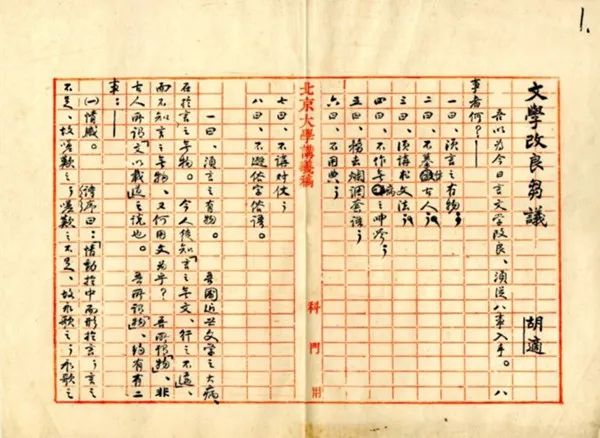 1.
文學改良芻議 胡適
吾以為今日言文學改良、須從八事入手。八
事者何？——
一曰、須言之有物。
二曰、不摹仿古人；
三曰、須講求文法；
四曰、不作无病之呻吟；
五曰、務去爛調套語；
六曰、不用典；
北京大學講義稿 科 門 用
七曰、不講對仗；
八曰、不避俗字俗語。
一曰、須言之有物。 吾國近世文學之大病、
在於言之无物。今人徒知「言之无文、行之不遠」、
而不知言之无物、又何用文為乎？吾所謂「物」、非
古人所謂「文以載道」之說也。吾所謂「物」、約有二
事：——
(一)情感。 詩序曰：「情動於中而形於言；言之
不足、故嗟歎之；嗟歎之不足、故永歌之；永歌之